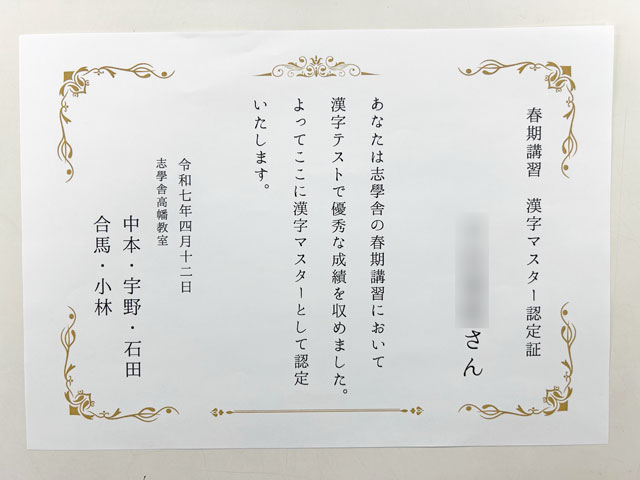 春期講習　漢字マスター認定証
さん
あなたは志學舎の春期講習において
漢字テストで優秀な成績を収めました。
よってここに漢字マスターとして認定
いたします。
令和七年四月十二日
志學舎高幡教室
中本・宇野・石田
合馬・小林